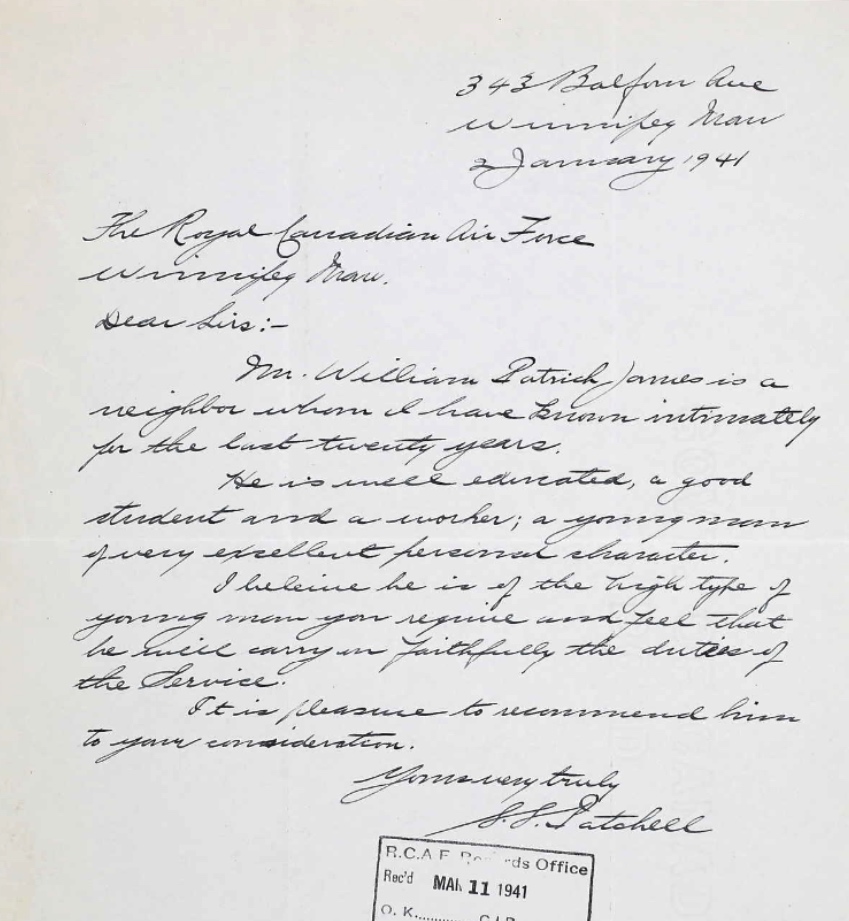 343 Balfour Ave
Winnipeg Man
2 January 1941
The Royal Canadian Air Force
Winnipeg Man.
Dear Sirs:-
Mr. William Patrick James is a
neighbor whom I have known intimately
for the last twenty years.
He is well educated, a good
student and a worker; a young man
of very excellent personal character.
I beleive he is of the high type of
young man you require and feel that
he will carry on faithfully the duties of
the Service.
It is pleasure to recommend him
to your consideration.
Yours very truly
S.S. Patchell
R.C.A.F. Records Office
Rec'd MAR 11 1941
O.K.